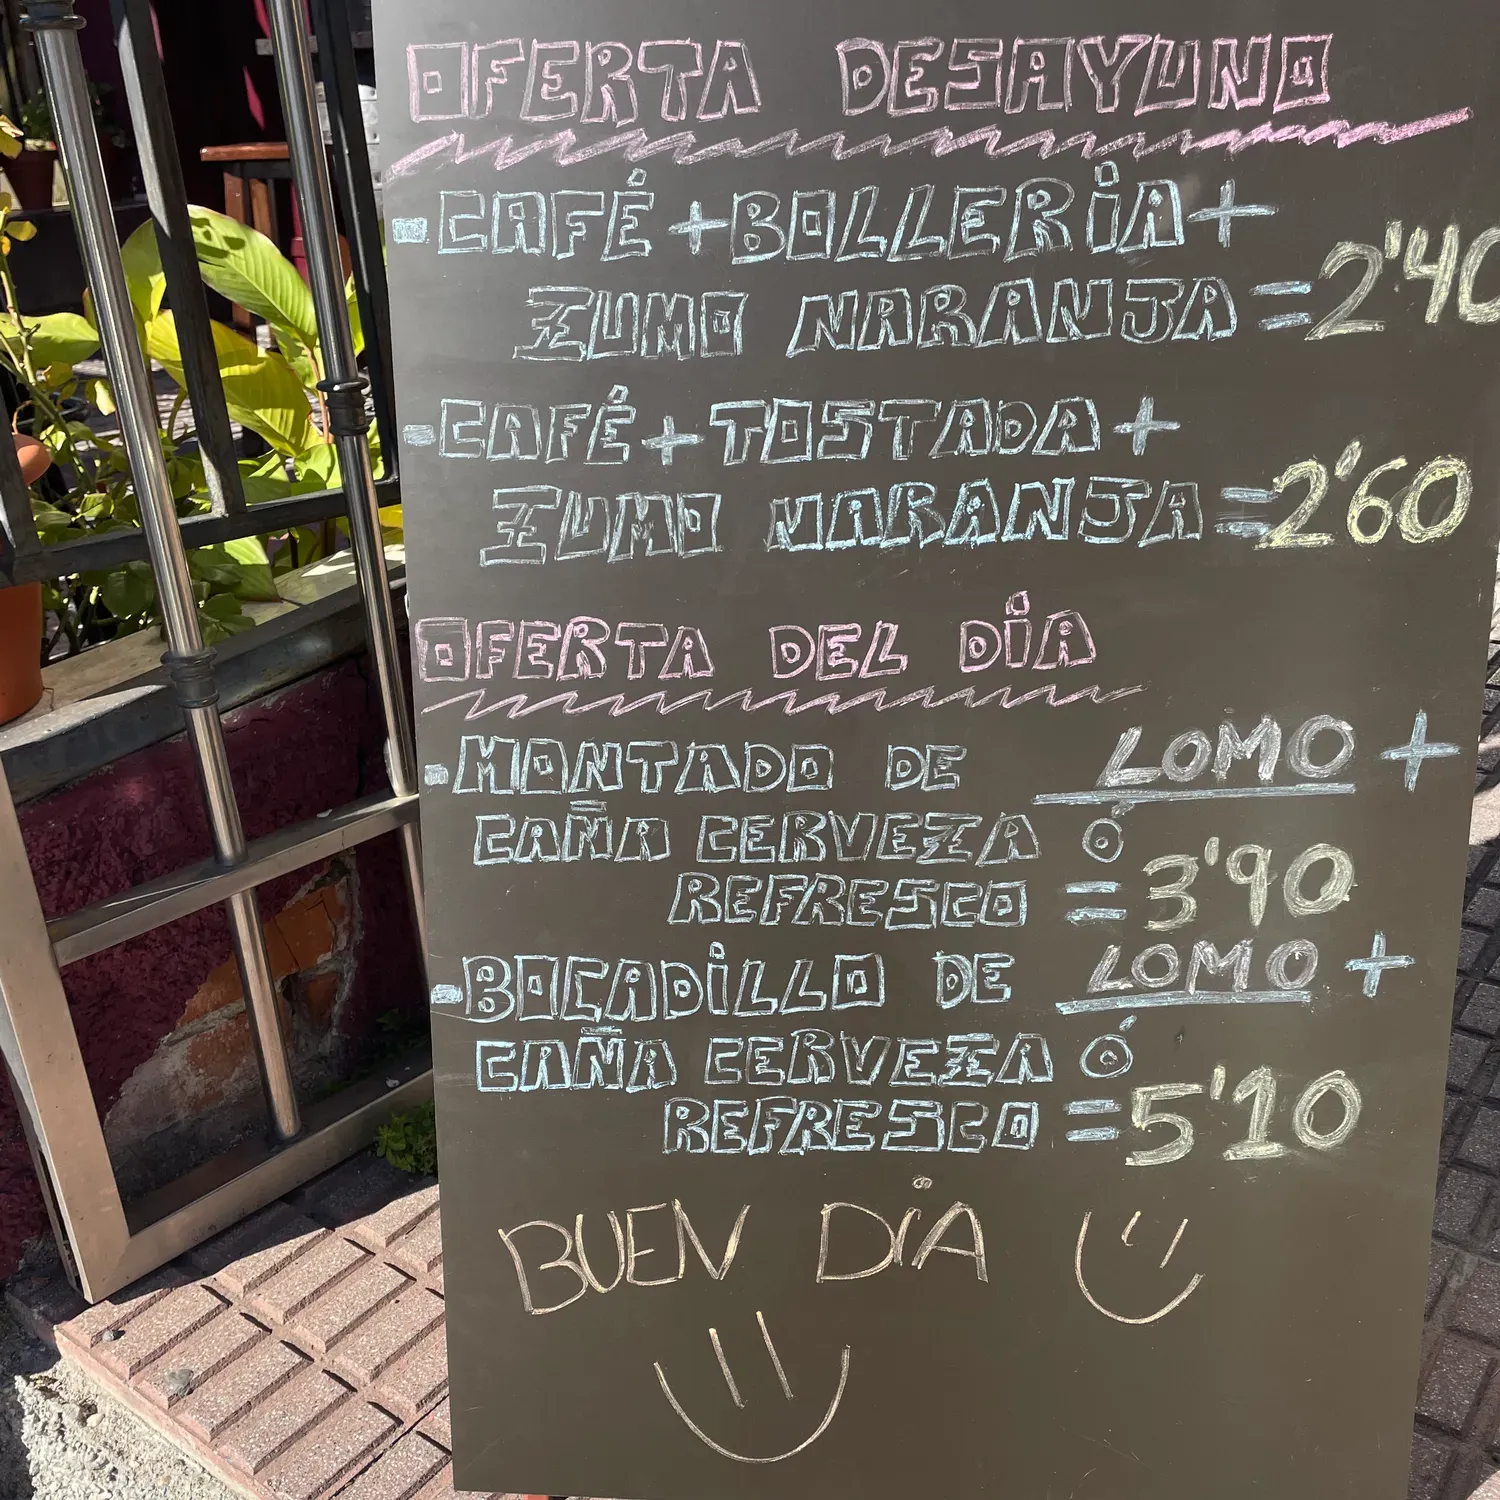 OFERTA DESAYUNO
-CAFÉ+BOLLERÍA+
ZUMO NARANJA=2'40
-CAFÉ+TOSTADA+
ZUMO NARANJA=2'60
OFERTA DEL DÍA
-MONTADO DE LOMO +
CAÑA CERVEZA Ó
REFRESCO =3'90
-BOCADILLO DE LOMO +
CAÑA CERVEZA Ó
REFRESCO =5'10
BUEN DÍA